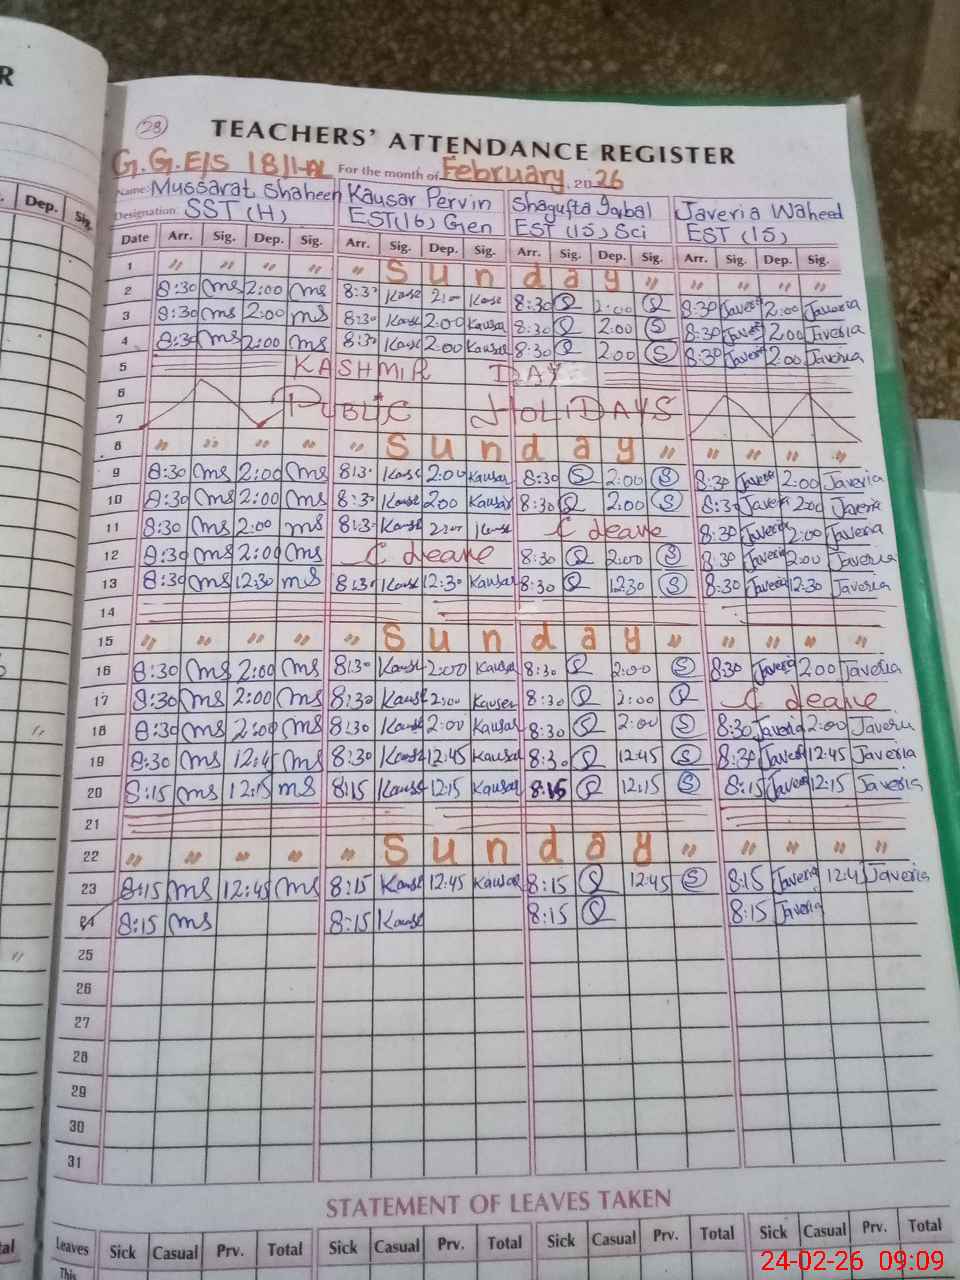 R
28
TEACHERS' ATTENDANCE REGISTER
G.G.E/S 18/1-AL For the month of February, 2026
Name: Mussarat Shaheen Kausar Pervin Shagufta Iqbal Javeria Waheed
Designation: SST (H) EST(16) Gen EST (15) Sci EST (15)
Dep. Sig.
Date Arr. Sig. Dep. Sig. Arr. Sig. Dep. Sig. Arr. Sig. Dep. Sig. Arr. Sig. Dep. Sig.
1 " " " " " Sunday " " " " "
2 8:30 ms 2:00 ms 8:30 Kausr 2:00 Kausr 8:30 S 2:00 S 8:30 Javeri 2:00 Javeria
3 8:30 ms 2:00 ms 8:30 Kausr 2:00 Kausar 8:30 S 2:00 S 8:30 Javeri 2:00 Javeria
4 8:30 ms 2:00 ms 8:30 Kausr 2:00 Kausar 8:30 S 2:00 S 8:30 Javeri 2:00 Javeria
5 KASHMIR DAY
6
PUBLIC HOLIDAYS
7
8 " " " " " Sunday " " " " "
9 8:30 ms 2:00 ms 8:30 Kausr 2:00 Kausar 8:30 S 2:00 S 8:30 Javeri 2:00 Javeria
10 8:30 ms 2:00 ms 8:30 Kausr 2:00 Kausar 8:30 S 2:00 S 8:30 Javeri 2:00 Javeria
11 8:30 ms 2:00 ms 8:30 Kausr 2:00 Kausr C Leave 8:30 Javeria 2:00 Javeria
12 8:30 ms 2:00 ms C Leave 8:30 S 2:00 S 8:30 Javeria 2:00 Javeria
13 8:30 ms 12:30 ms 8:30 Kausr 12:30 Kausar 8:30 S 12:30 S 8:30 Javeria 12:30 Javeria
14
15 " " " " " Sunday " " " " "
16 8:30 ms 2:00 ms 8:30 Kausr 2:00 Kausar 8:30 S 2:00 S 8:30 Javeria 2:00 Javeria
17 8:30 ms 2:00 ms 8:30 Kausr 2:00 Kauser 8:30 S 2:00 S C Leave
18 8:30 ms 2:00 ms 8:30 Kausr 2:00 Kausar 8:30 S 2:00 S 8:30 Javeria 2:00 Javeria
19 8:30 ms 12:45 ms 8:30 Kausr 12:45 Kausar 8:30 S 12:45 S 8:30 Javeri 12:45 Javeria
20 8:15 ms 12:15 ms 8:15 Kausr 12:15 Kausar 8:15 S 12:15 S 8:15 Javeri 12:15 Javeria
21
22 " " " " " Sunday " " " " "
23 8:15 ms 12:45 ms 8:15 Kausr 12:45 Kausar 8:15 S 12:45 S 8:15 Javeria 12:4 Javeria
24 8:15 ms 8:15 Kausr 8:15 S 8:15 Javeria
25
26
27
28
29
30
31
STATEMENT OF LEAVES TAKEN
Leaves Sick Casual Prv. Total Sick Casual Prv. Total Sick Casual Prv. Total Sick Casual Prv. Total
This
24-02-26 09:09